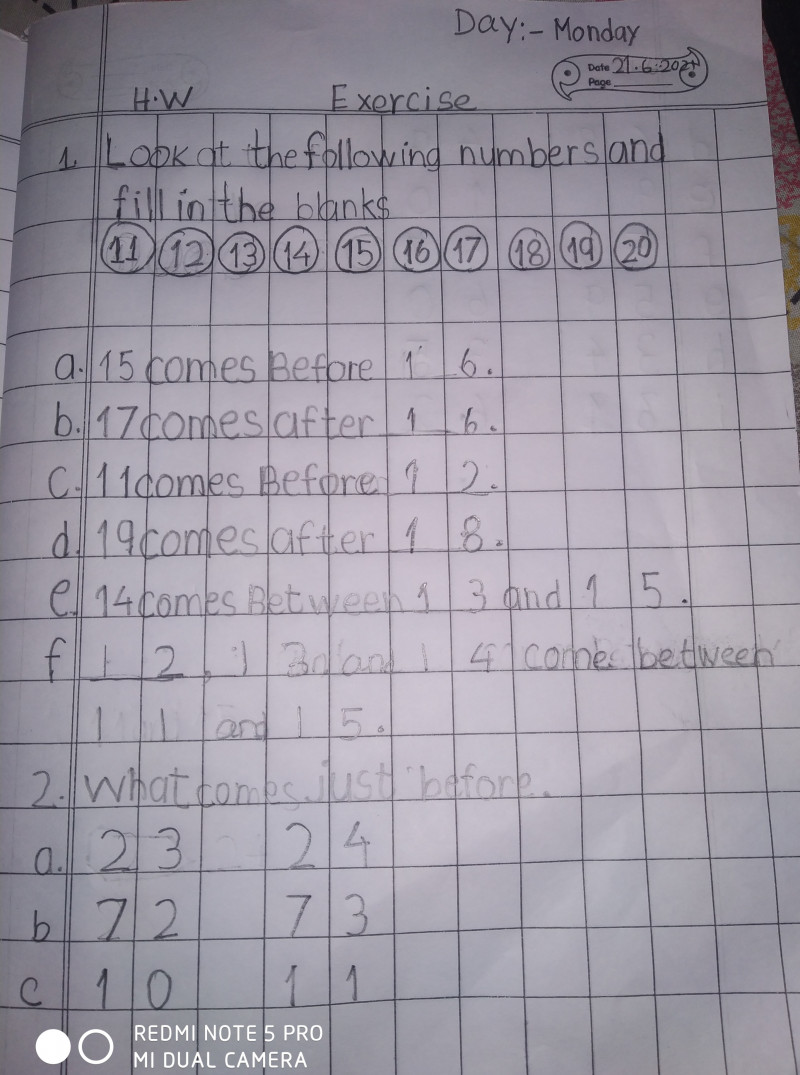 Day:- Monday
Date 21.6.2021
Page
H.W Exercise
1. Look at the following numbers and
fill in the blanks
11 12 13 14 15 16 17 18 19 20
a. 15 comes Before 1 6.
b. 17 comes after 1 6.
c. 11 comes Before 1 2.
d. 19 comes after 1 8.
e. 14 comes Between 1 3 and 1 5.
f 1 2, 1 3 and 1 4 come between
1 1 and 1 5.
2. What comes just before.
a. 2 3 2 4
b 7 2 7 3
c 1 0 1 1
REDMI NOTE 5 PRO
MI DUAL CAMERA